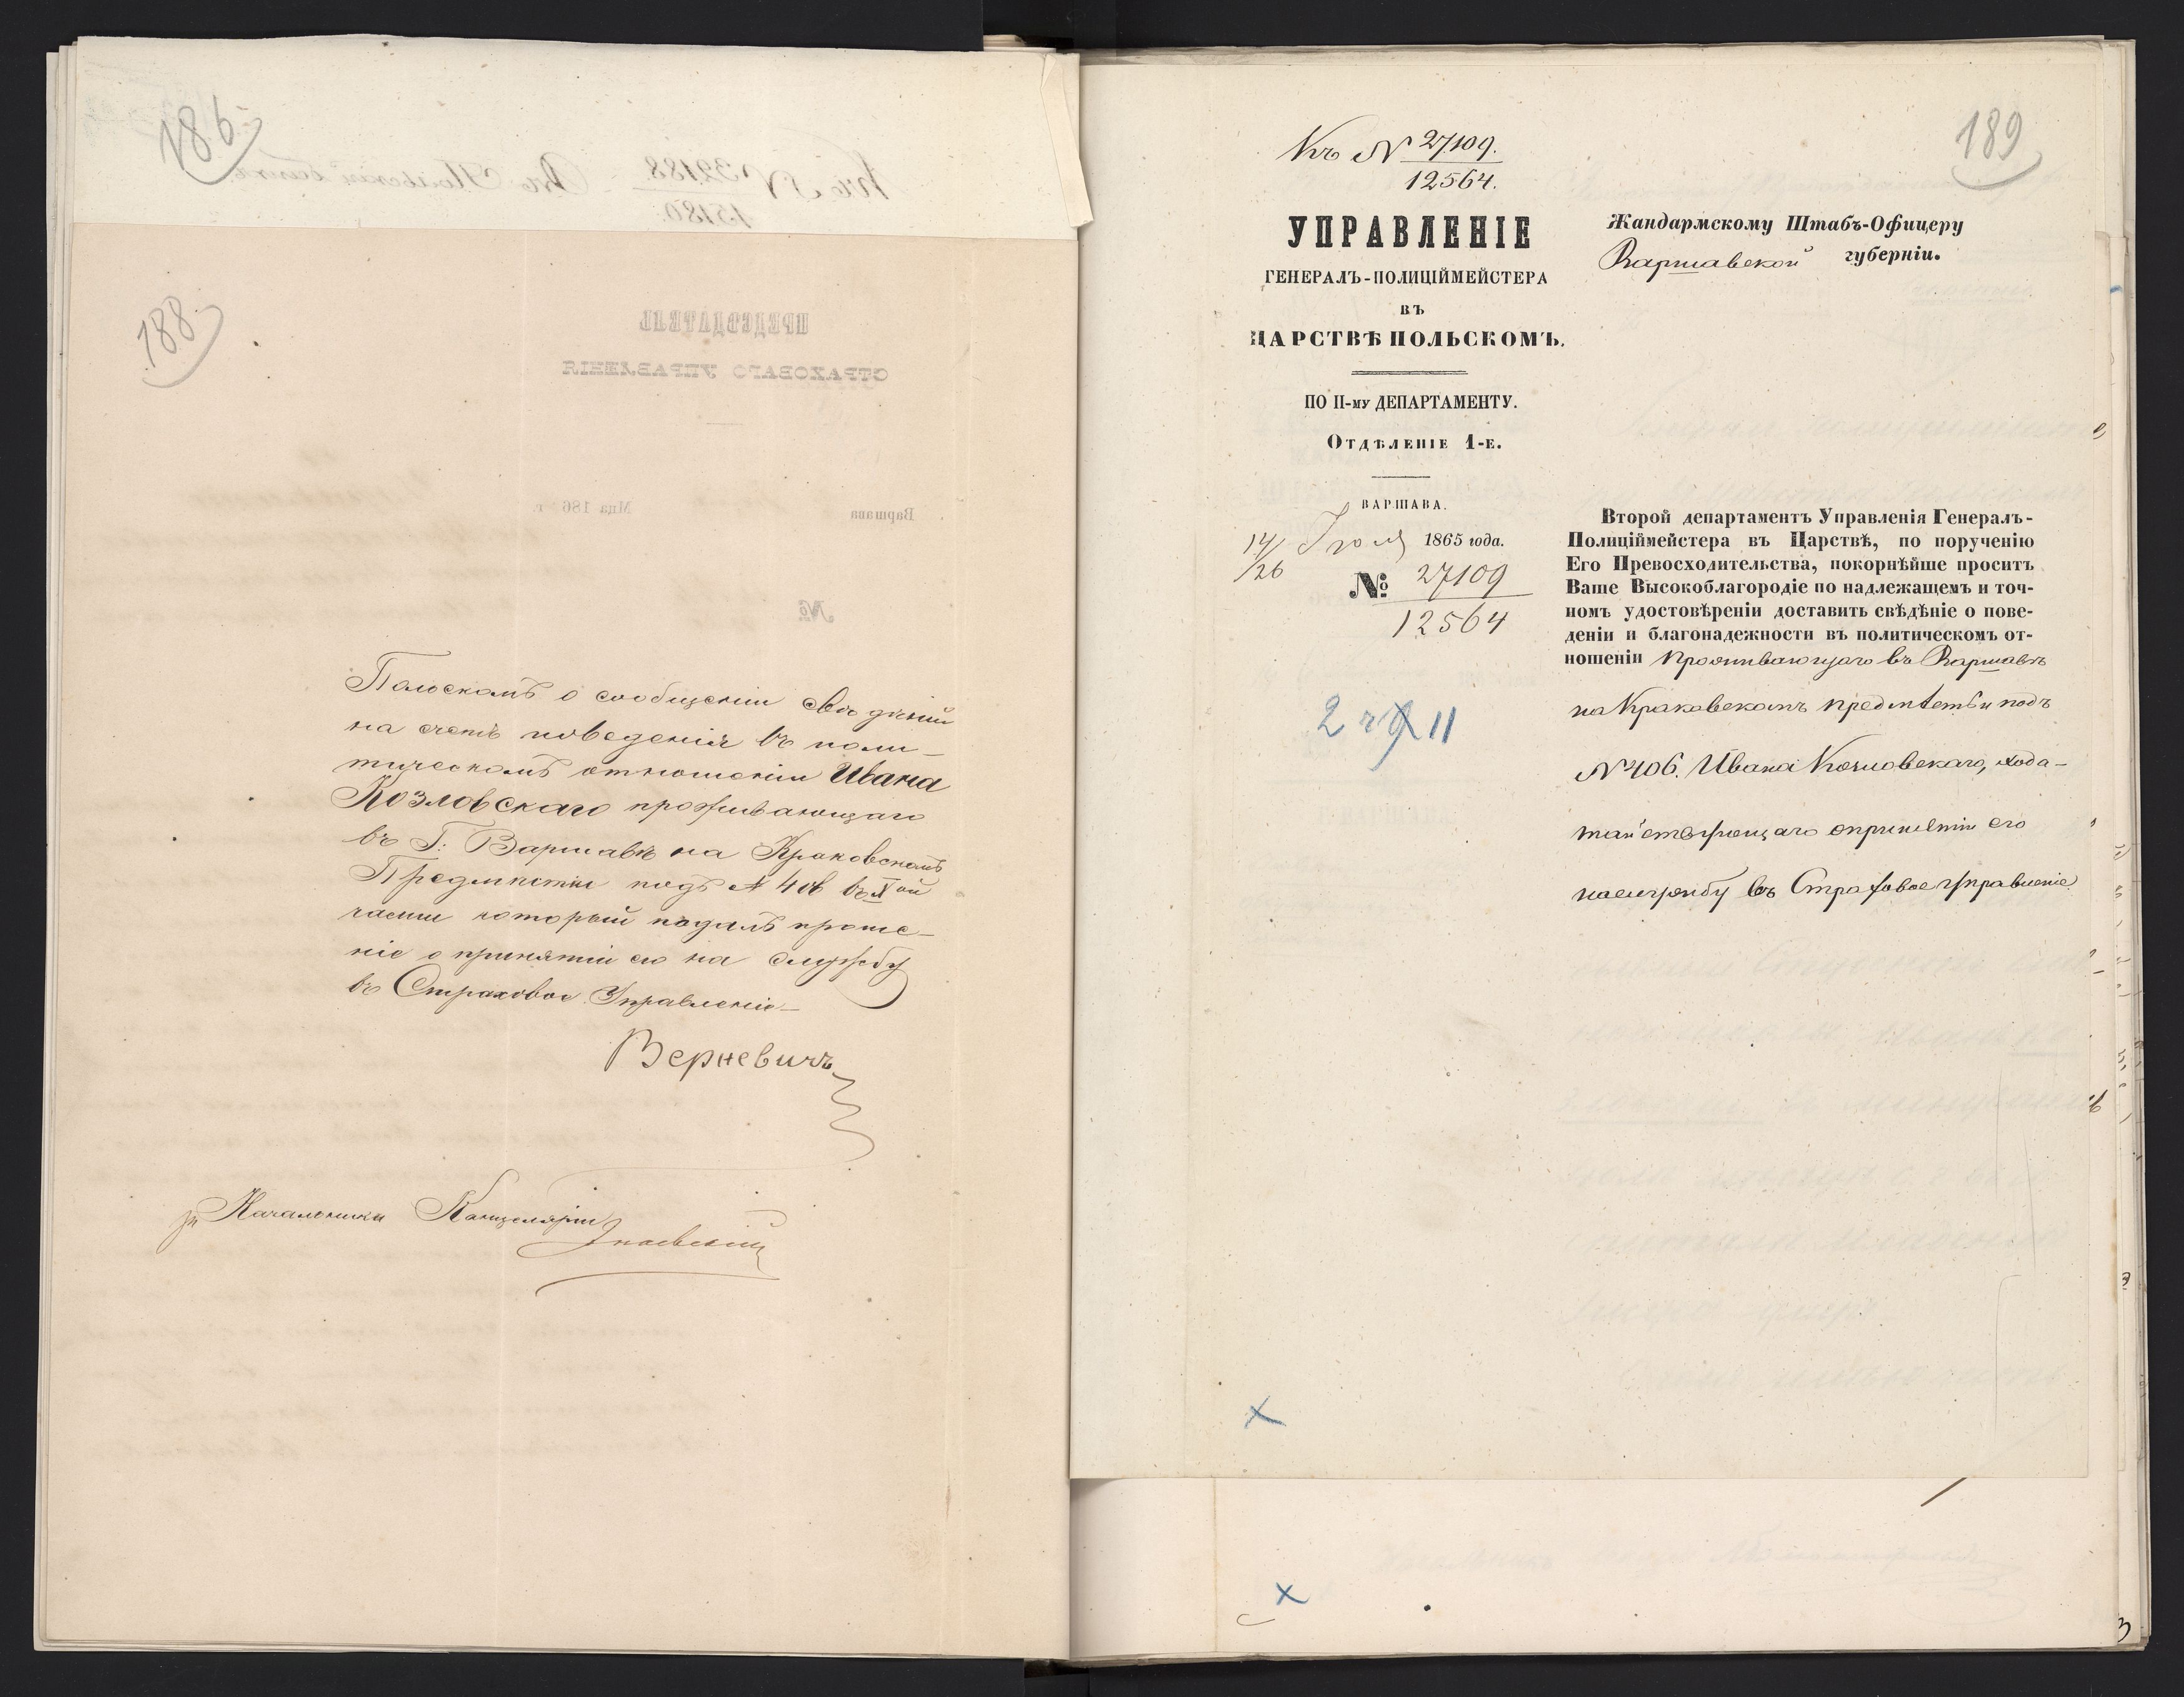 186
188
Польскомъ о сообщеніи свѣдѣній
на счетъ поведенія въ поли-
тическомъ отношеніи Ивана
Козловскаго проживающаго
въ Г: Варшавѣ на Краковскомъ
Предмѣстіи подъ № 406 въ
части который подалъ проше-
ніе о принятіи его на службу
въ Страховое Управленіе
Верневичъ
за Начальника Канцеляріи
189
Къ № 27109.
12564.
УПРАВЛЕНІЕ
ГЕНЕРАЛЪ-ПОЛИЦІЙМЕЙСТЕРА
ВЪ
ЦАРСТВѢ ПОЛЬСКОМЪ.
ПО II-му ДЕПАРТАМЕНТУ.
Отдѣленіе 1-е.
ВАРШАВА.
14/26 Іюля 1865 года.
№ 27109
12564
Жандармскому Штабъ-Офицеру
Варшавской губерніи.
Второй департаментъ Управленія Генералъ-
Полиціймейстера въ Царствѣ, по порученію
Его Превосходительства, покорнѣйше проситъ
Ваше Высокоблагородіе по надлежащемъ и точ-
номъ удостовѣреніи доставить свѣдѣніе о пове-
деніи и благонадежности въ политическомъ от-
ношеніи проживающаго въ Варшавѣ
на Краковскомъ предмѣстьи подъ
№ 406. Ивана Козловскаго, хода-
тайствующаго о принятіи его
на службу въ Страховое Управленіе